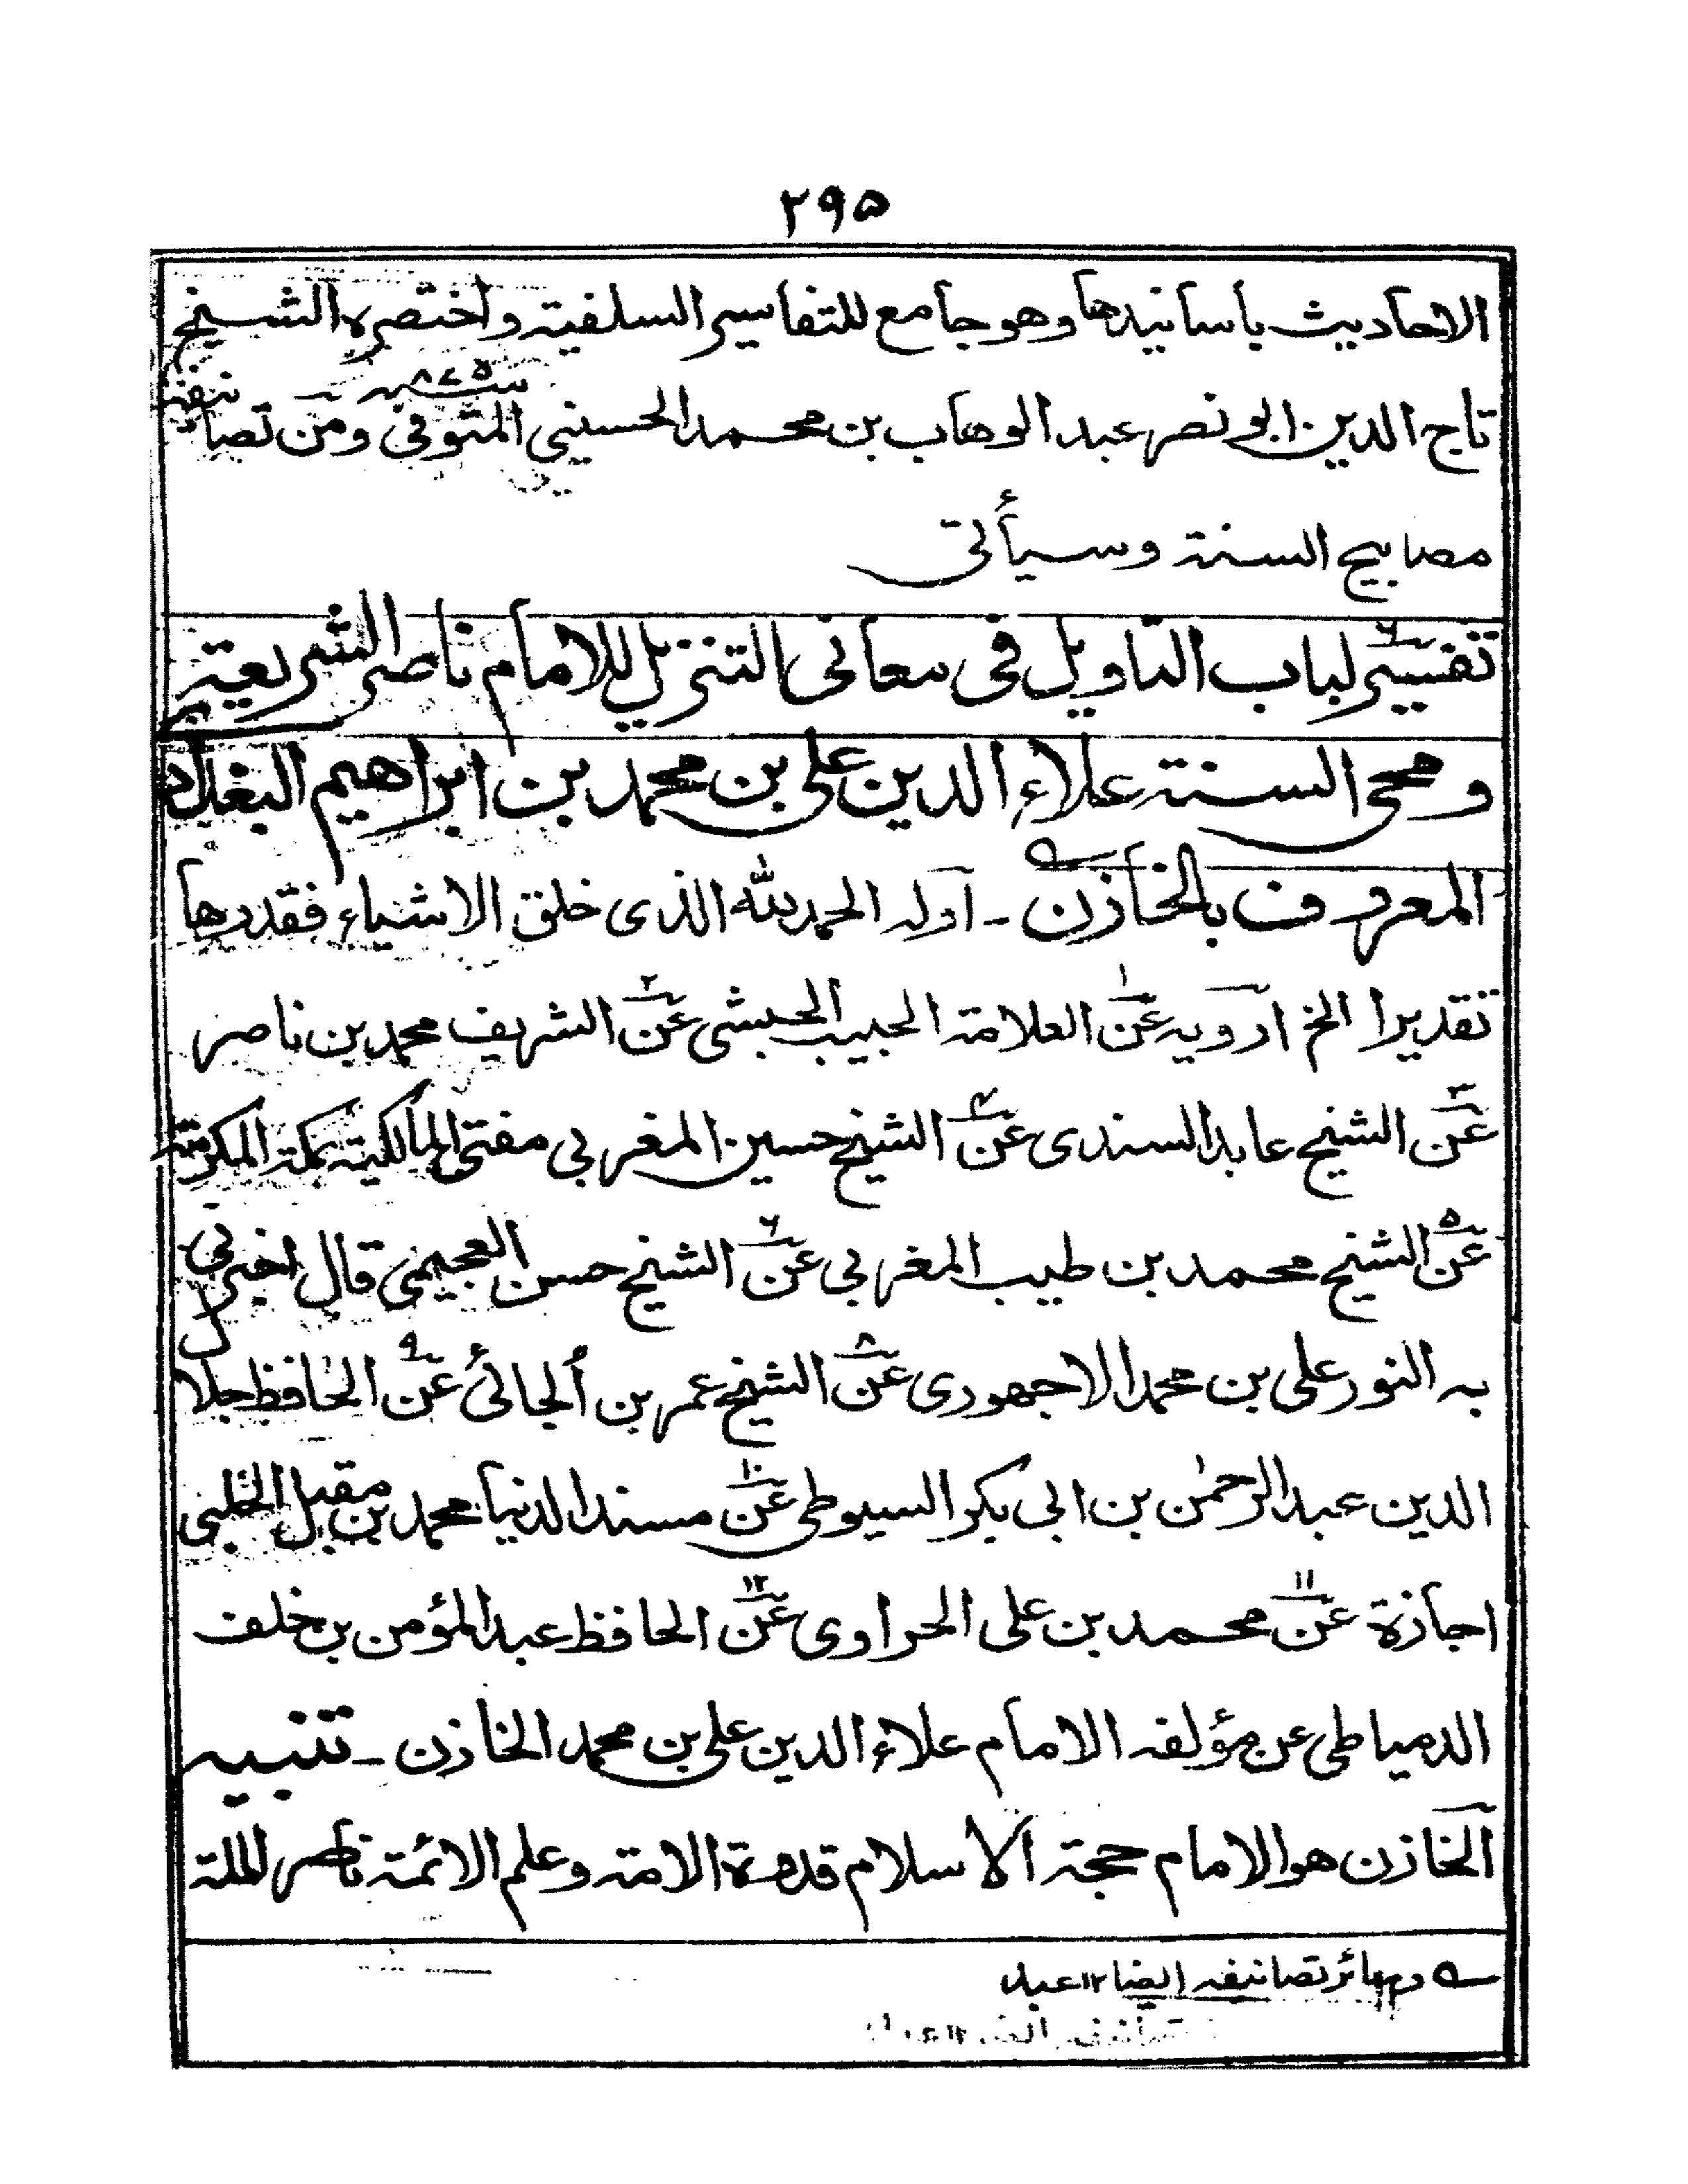 ۲۹۵
الاحاديث بأسانيدها وهو جامع للتفاسير السلفية واختصره الشيخ
تاج الدين ابو نصر عبد الوهاب بن محمد الحسيني المتوفى سنة ۸۷۵ ومن تصانيفه
مصابيح السنة وسيأتى
تفسير لباب التاويل فى معانى التنزيل للامام ناصر الشريعة
ومحى السنة علاء الدين على بن محمد بن ابراهيم البغدادى
المعروف بالخازن ـ اوله الحمد لله الذى خلق الاشياء فقدرها
تقديرا الخ ارويه عن۱ العلامة الحبيب الحبشى عن۲ الشريف محمد بن ناصر
عن۳ الشيخ عابد السندى عن۴ الشيخ حسين المغربى مفتى المالكية بمكة المكرمة
عن۵ الشيخ محمد بن طيب المغربى عن۶ الشيخ حسن العجيمى قال اخبرنى
به النور على بن محمد الاجهورى عن۸ الشيخ عمر بن ألجائى عن۹ الحافظ جلال
الدين عبد الرحمٰن بن ابى بكر السيوطى عن۱۰ مسند الدنيا محمد بن مقبل الحلبى
اجازة عن۱۱ محمد بن على الحراوى عن۱۲ الحافظ عبد المؤمن بن خلف
الدمياطى عن مؤلفه الامام علاء الدين على بن محمد الخازن ـ تنبيه
الخازن هو الامام حجة الاسلام قدوة الامة وعلم الائمة ناصر الملة
تصانيفه ايضا ۱۲ عبد